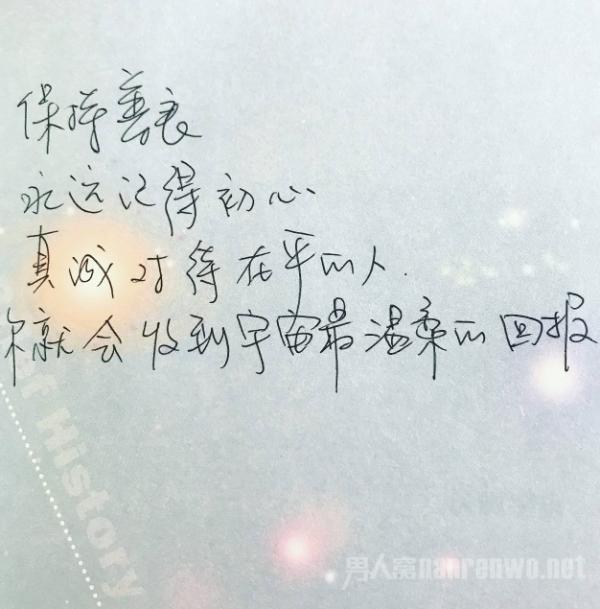 保持善良
永远记得初心
真诚对待在乎的人.
你就会收到宇宙最温柔的回报
of History
男人窝nanrenwo.net